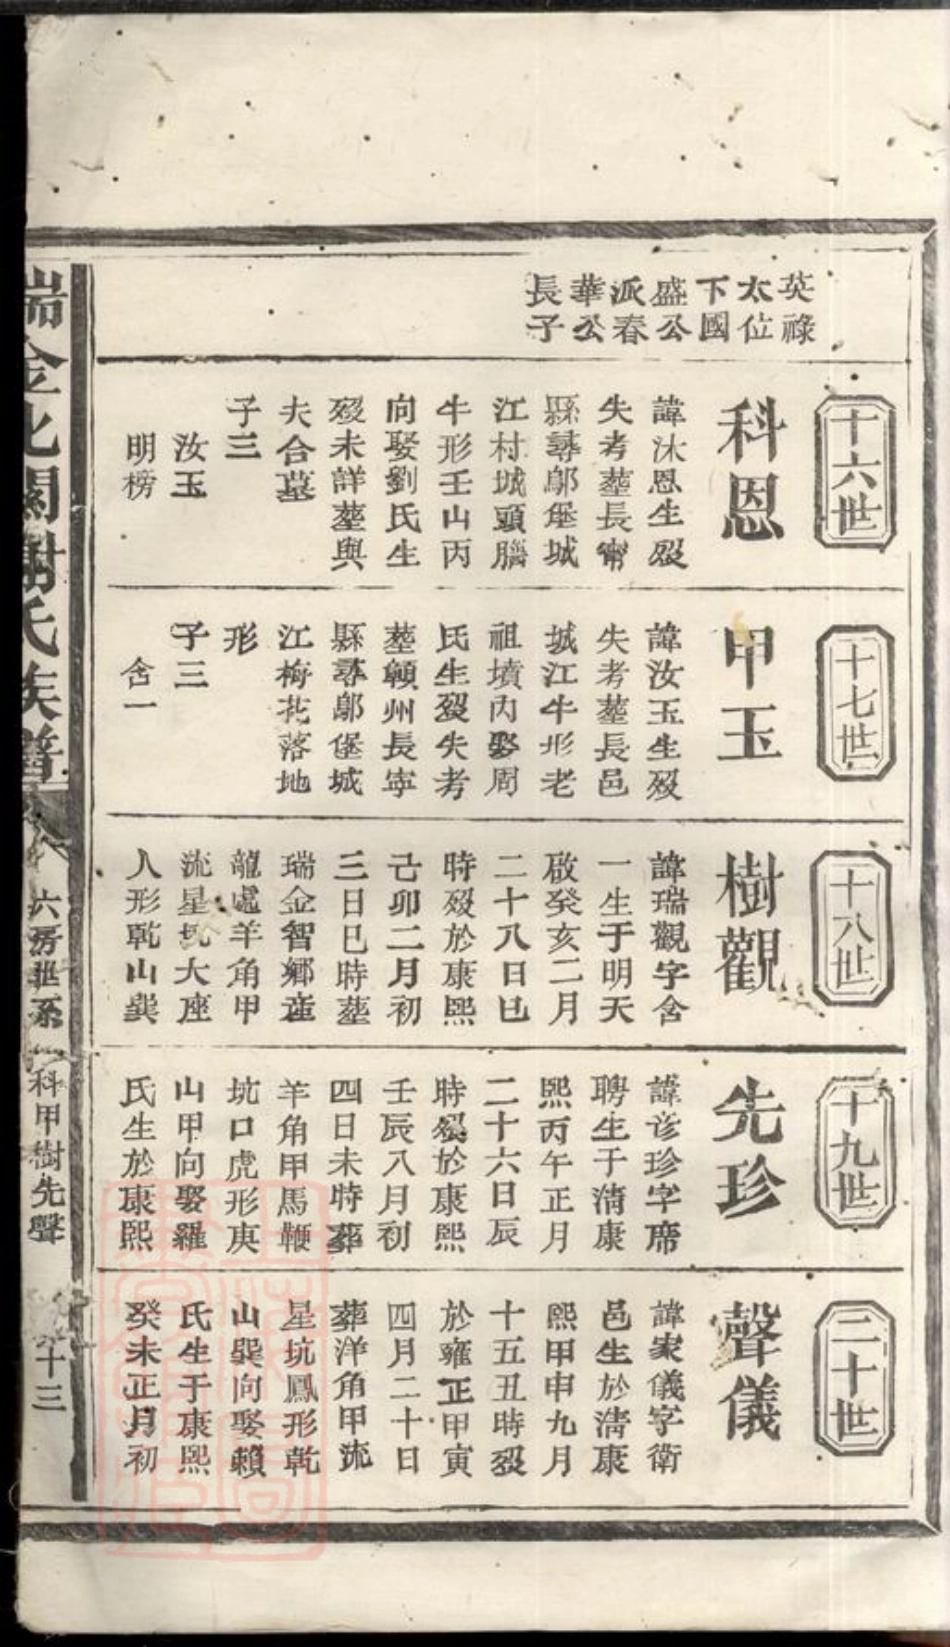 英祿
太位
下國
盛公
派春
華公
長子
十六世
科恩
諱沐恩生歿
失考塟長甯
縣尋鄔堡城
江村城頭腦
牛形壬山丙
向娶劉氏生
歿未詳塟與
夫合墓
子三
汝玉
明榜
十七世
甲玉
諱汝玉生歿
失考塟長邑
城江牛形老
祖墳內娶周
氏生歿失考
塟贛州長寧
縣尋鄔堡城
江梅花落地
形
子三
含一
十八世
樹觀
諱瑞觀字含
一生于明天
啟癸亥二月
二十八日巳
時歿於康熙
己卯二月初
三日巳時塟
瑞金智鄉
龍處羊角甲
流星坑大座
人形乾山巽
十九世
先珍
諱彥珍字席
聘生于清康
熙丙午正月
二十六日辰
時歿於康熙
壬辰八月初
四日未時葬
羊角甲馬鞭
坑口虎形庚
山甲向娶羅
氏生於康熙
二十世
聲儀
諱家儀字衛
邑生於清康
熙甲申九月
十五丑時歿
於雍正甲寅
四月二十日
葬洋角甲流
星坑鳳形乾
山巽向娶賴
氏生于康熙
癸未正月初
瑞金北關謝氏族譜
六房世系
科甲樹先聲
十三